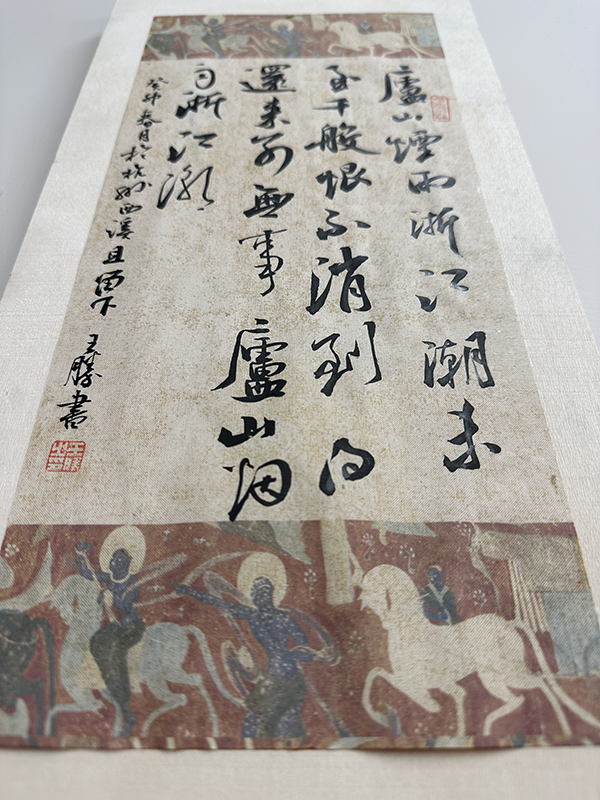 廬山煙雨浙江潮未
至千般恨不消到得
還来别無事廬山烟
雨浙江潮
癸卯春月於杭州西溪且留下 王勝書
王勝之印